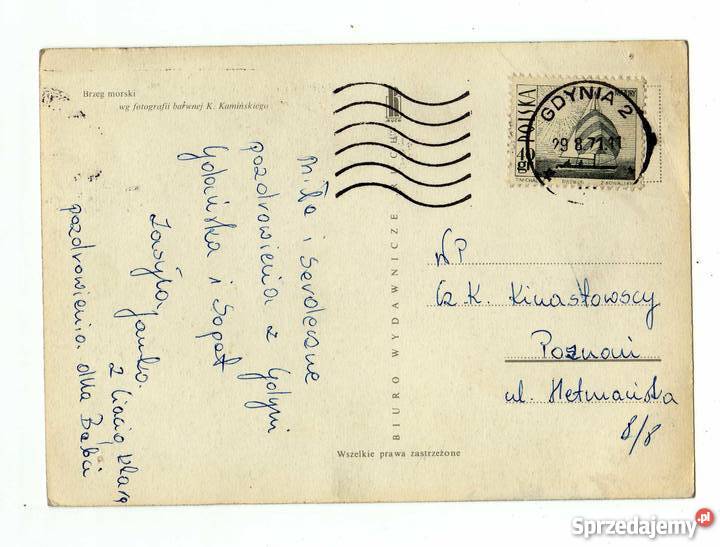 Brzeg morski
wg fotografii barwnej K. Kamińskiego
POLSKA
40 gr
GDYNIA 2
29.8.71.11
Miłe i serdeczne
pozdrowienia z Gdyni
Gdańska i Sopot
Zasyła Janka.
z Ciocią Klarą
pozdrowienia dla Babci
BIURO WYDAWNICZE RUCH
WP
Cz. K. Kinastowscy
Poznań
ul. Hetmańska
8/8
Wszelkie prawa zastrzeżone
Sprzedajemy.pl